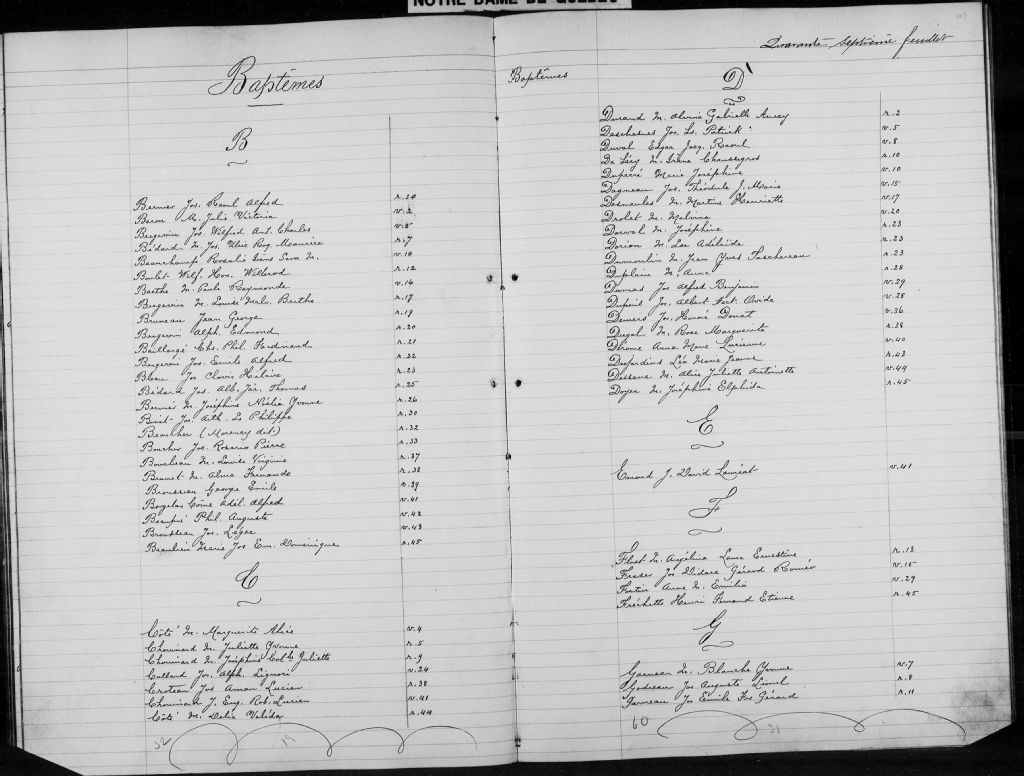 NOTRE DAME DE QUÉBEC
Baptêmes
B
Bernier Jos. Raoul Alfred r.24
Baron M. Julie Victoria v.2
Bergevin Jos. Wilfrid Ant. Charles v.5
Bédard M. Jos. Ulric Roy Maurice r.7
Beauchamp Rosalie Irène Sara M. v.10
Boulet Wilf. Hon. Wilbrod r.12
Barthe M. Paule Raymonde v.14
Bergevin M. Louise Berthe r.17
Bruneau Jean George r.19
Bergevin Alph. Edmond r.20
Baillargé Chs. Phil. Ferdinand r.21
Bergevin Jos. Emile Alfred r.22
Blais Jos Clovis Hilaire r.23
Bédard Jos. Alb. Thomas r.25
Bernier M. Joséphine Yvonne r.26
Benoit Jos. Arth. Ls Philippe r.30
Beaucher (Morency dit) r.32
Boucher Jos. Rosario Pierre r.33
Bourbeau M. Louise Virginie r.37
Brunet M. Alma Fernande r.38
Brousseau George Emile v.39
Côme Adél. Alfred v.41
Beaupré Phil. Auguste v.42
Brousseau Jos. Léger v.43
Beaulieu Marie Jos Em. Dominique r.45
C
Côté M. Marguerite Alice v.4
Chouinard M. Juliette Yvonne r.5
Chouinard M. Joséphine Juliette r.9
Collard Jos. Alph. Liguori v.24
Croteau Jos Arman Lucien r.38
Chouinard J. Eug. Rob. Lucien v.41
Côté M. Dalia Valéda r.44
32
Quarante-septième feuillet
Baptêmes
D
Durand M. Alvina Gabrielle r.2
Deschesnes Jos. Ls. Patrick v.5
Duval Edgar Jacq. Raoul v.8
De Léry M. Irène Chaussegros r.10
Duperré Marie Joséphine v.10
Dagneau Jos. Théodule J. Marie v.15
Desmeules M. Martine Henriette v.17
Drolet M. Malvina v.20
Dorval M. Joséphine r.23
Dorion M. Lse Adélaïde r.23
Dumoulin M. Jean Yves Taschereau r.23
Duplain M. Anne r.28
Dumas Jos Alfred Benjamin v.29
Dupuis Jos. Albert Hect. Ovide v.28
Demers Jos. Honoré Donat v.36
Dugal M. Rose Marguerite r.38
Derome Anna Marie Lucienne v.40
Desjardins Léa Marie Jeanne r.43
Dessane M. Alice Juliette Antoinette v.44
Doyer M. Joséphine Elphida r.45
E
Emond J. David Lauréat v.41
F
Fluet M. Angélina Laura Ernestine r.13
Fraser Jos Gérard Roméo v.15
Fortin Anne E. Emilia v.29
Fréchette Henri Fernand Etienne r.45
G
Garneau M. Blanche Yvonne v.7
Godreau Jos Auguste Lionel r.8
Garneau Jos Emile Frs Gérard r.11
60
31